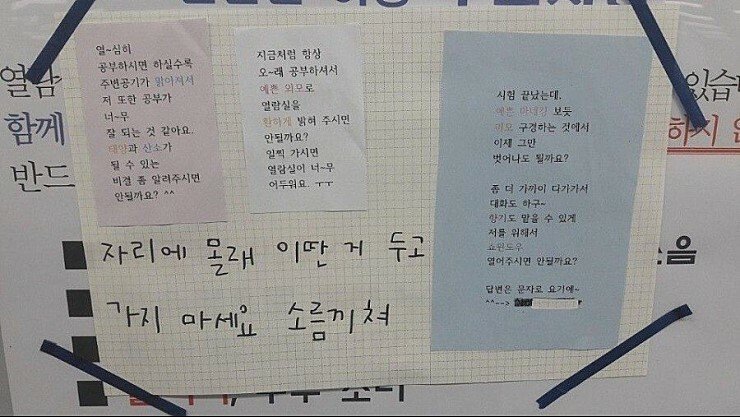 열~심히
공부하시면 하실수록
주변공기가 맑아져서
저 또한 공부가
너~무
잘 되는 것 같아요.
태양과 산소가
될 수 있는
비결 좀 알려주시면
안될까요? ^^
지금처럼 항상
오~래 공부하셔서
예쁜 외모로
열람실을
환하게 밝혀 주시면
안될까요?
일찍 가시면
열람실이 너~무
어두워요. ㅜㅜ
시험 끝났는데.
예쁜 마네킹 보듯
외모 구경하는 것에서
이제 그만
벗어나도 될까요?
좀 더 가까이 다가가서
대화도 하구~
향기도 맡을 수 있게
저를 위해서
쇼윈도우
열어주시면 안될까요?
답변은 문자로 요기에~
^^-->
자리에 몰래 이딴 거 두고
가지 마세요 소름끼쳐
열람
함께
반드
있습
하시
음
소리